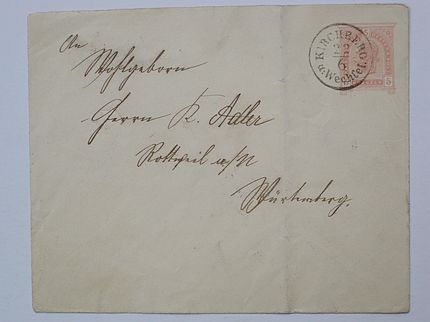 An
Wohlgeborn
Herrn K. Adler
Rottweil a/N
Würtemberg.
KIRCHBERG
a. Wechsel
5